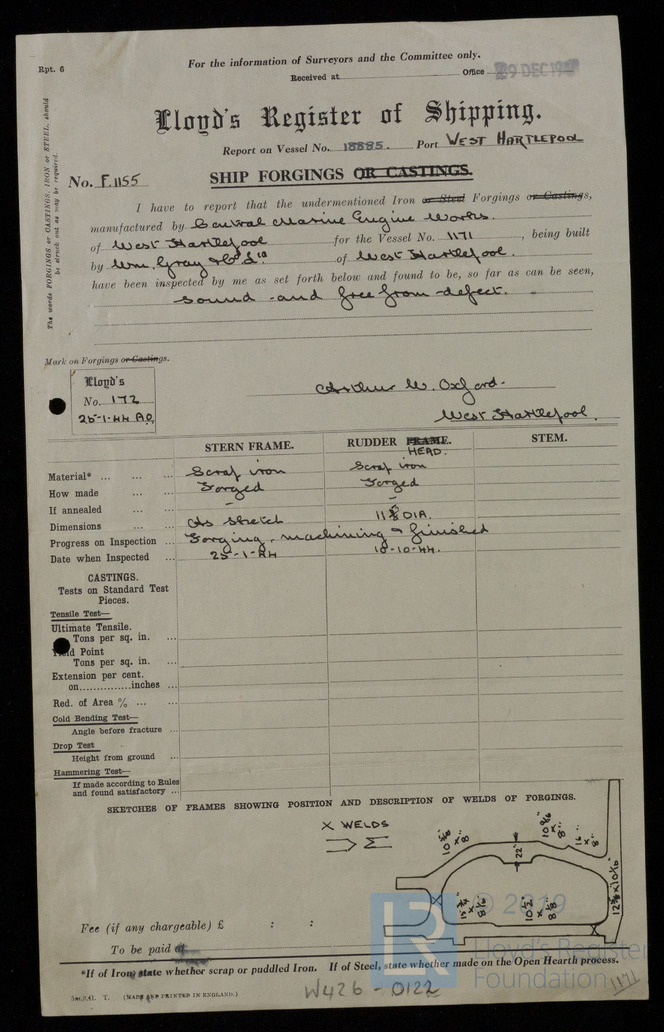 Rpt. 6
For the information of Surveyors and the Committee only.
Received at Office 29 DEC 19
Lloyd's Register of Shipping.
Report on Vessel No. 18885. Port WEST HARTLEPOOL
No. F.1155 SHIP FORGINGS OR CASTINGS.
The words FORGINGS or CASTINGS, IRON or STEEL, should be struck out as may be required.
I have to report that the undermentioned Iron or Steel Forgings or Castings,
manufactured by Central Marine Engine Works.
of West Hartlepool for the Vessel No. 1171, being built
by Wm. Gray & Co Ltd of West Hartlepool.
have been inspected by me as set forth below and found to be, so far as can be seen,
sound and free from defect.
Mark on Forgings or Castings.
Lloyd's
No. 172
25-1-44 A.O.
Arthur W. Oxford.
West Hartlepool.
STERN FRAME. RUDDER FRAME. STEM.
HEAD.
Material* ... ... Scrap iron Scrap iron
How made ... ... Forged Forged
If annealed ... ... - -
Dimensions ... ... As Sketch DIA.
Progress on Inspection ... Forging, machining & finished
Date when Inspected ... 25-1-44 10-10-44.
CASTINGS.
Tests on Standard Test
Pieces.
Tensile Test—
Ultimate Tensile.
Tons per sq. in. ...
Yield Point
Tons per sq. in. ...
Extension per cent.
on...............inches ...
Red. of Area % ... ...
Cold Bending Test—
Angle before fracture ...
Drop Test
Height from ground ...
Hammering Test—
If made according to Rules
and found satisfactory ...
SKETCHES OF FRAMES SHOWING POSITION AND DESCRIPTION OF WELDS OF FORGINGS.
X WELDS
22"
Fee (if any chargeable) £ : :
To be paid at
© 2019
Lloyd's Register
Foundation
*If of Iron, state whether scrap or puddled Iron. If of Steel, state whether made on the Open Hearth process.
T. (MADE AND PRINTED IN ENGLAND.)
W426 - 0122
1171